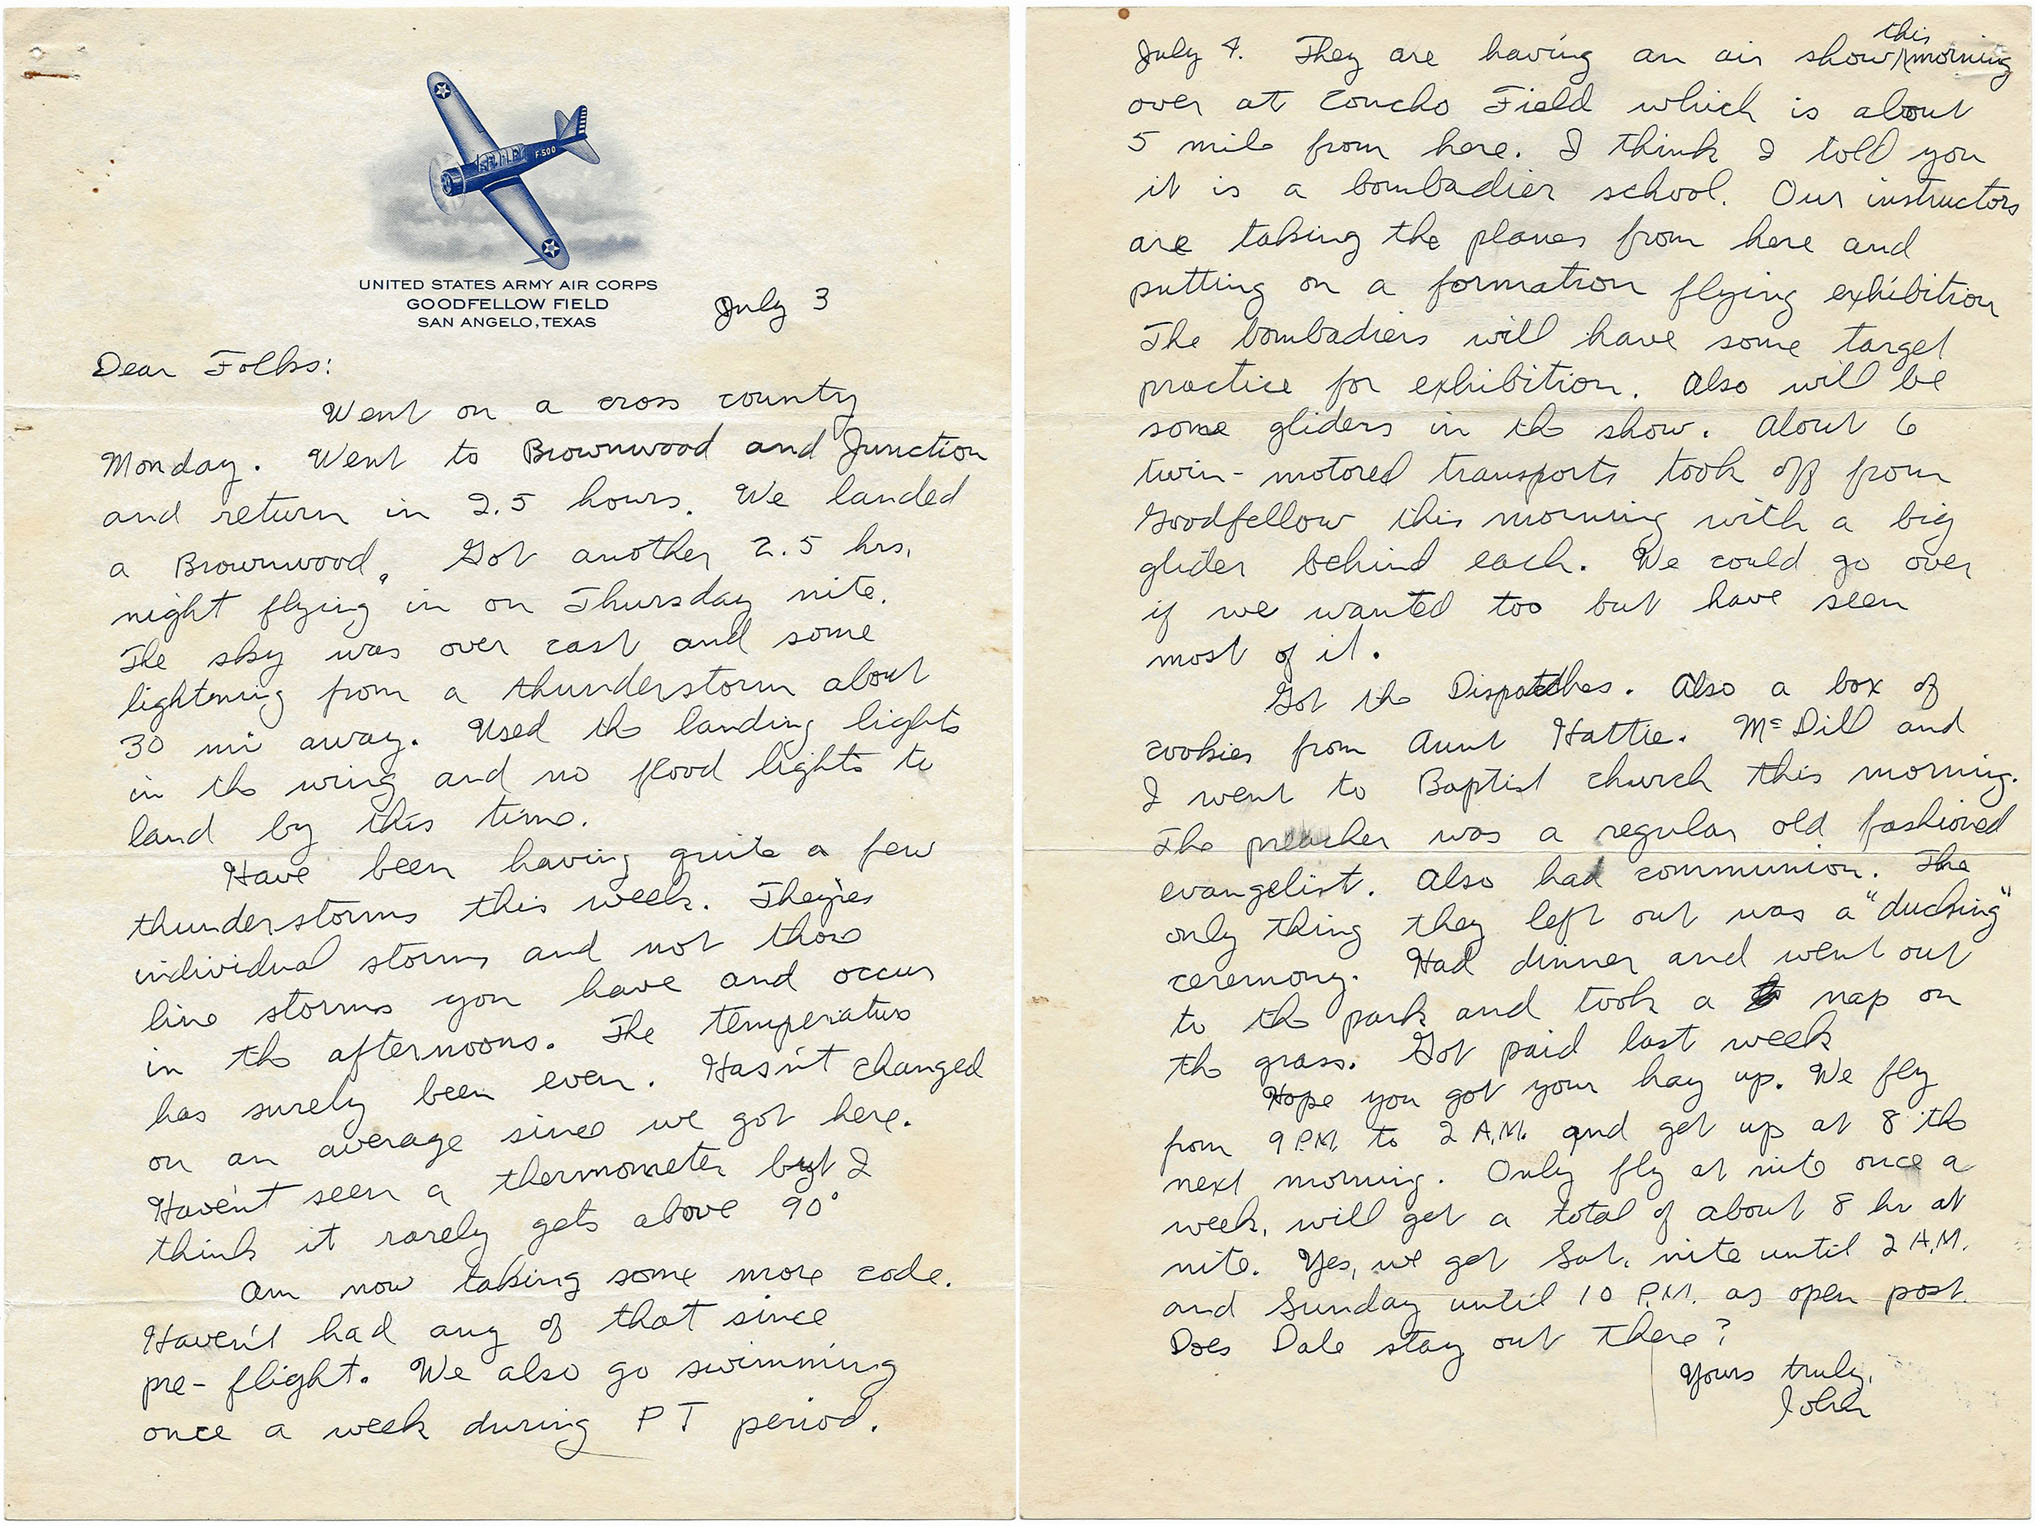 F-500
UNITED STATES ARMY AIR CORPS
GOODFELLOW FIELD
SAN ANGELO, TEXAS
July 3
Dear Folks:
Went on a cross county
Monday. Went to Brownwood and Junction
and return in 2.5 hours. We landed
a Brownwood. Got another 2.5 hrs.
night flying in on Thursday nite.
The sky was over cast and some
lightning from a thunderstorm about
30 mi away. Used the landing lights
in the wing and no flood lights to
land by this time.
Have been having quite a few
thunderstorms this week. They're
individual storms and not those
line storms you have and occur
in the afternoons. The temperature
has surely been even. Hasn't changed
on an average since we got here.
Haven't seen a thermometer but I
think it rarely gets above 90°
Am now taking some more code.
Haven't had any of that since
pre-flight. We also go swimming
once a week during PT period.
July 4. They are having an air show this morning
over at Concho Field which is about
5 mile from here. I think I told you
it is a bombadier school. Our instructors
are taking the planes from here and
putting on a formation flying exhibition
The bombadiers will have some target
practice for exhibition. Also will be
some gliders in the show. About 6
twin-motored transports took off from
Goodfellow this morning with a big
glider behind each. We could go over
if we wanted too but have seen
most of it.
Got the Dispatches. Also a box of
cookies from Aunt Hattie. McDill and
I went to Baptist church this morning.
The preacher was a regular old fashioned
evangelist. Also had communion. The
only thing they left out was a "ducking"
ceremony. Had dinner and went out
to the park and took a nap on
the grass. Got paid last week
Hope you got your hay up. We fly
from 9 P.M. to 2 A.M. and get up at 8 the
next morning. Only fly at nite once a
week, will get a total of about 8 hr at
nite. Yes, we get Sat. nite until 2 A.M.
and Sunday until 10 P.M. as open post.
Does Dale stay out there?
Yours truly,
John